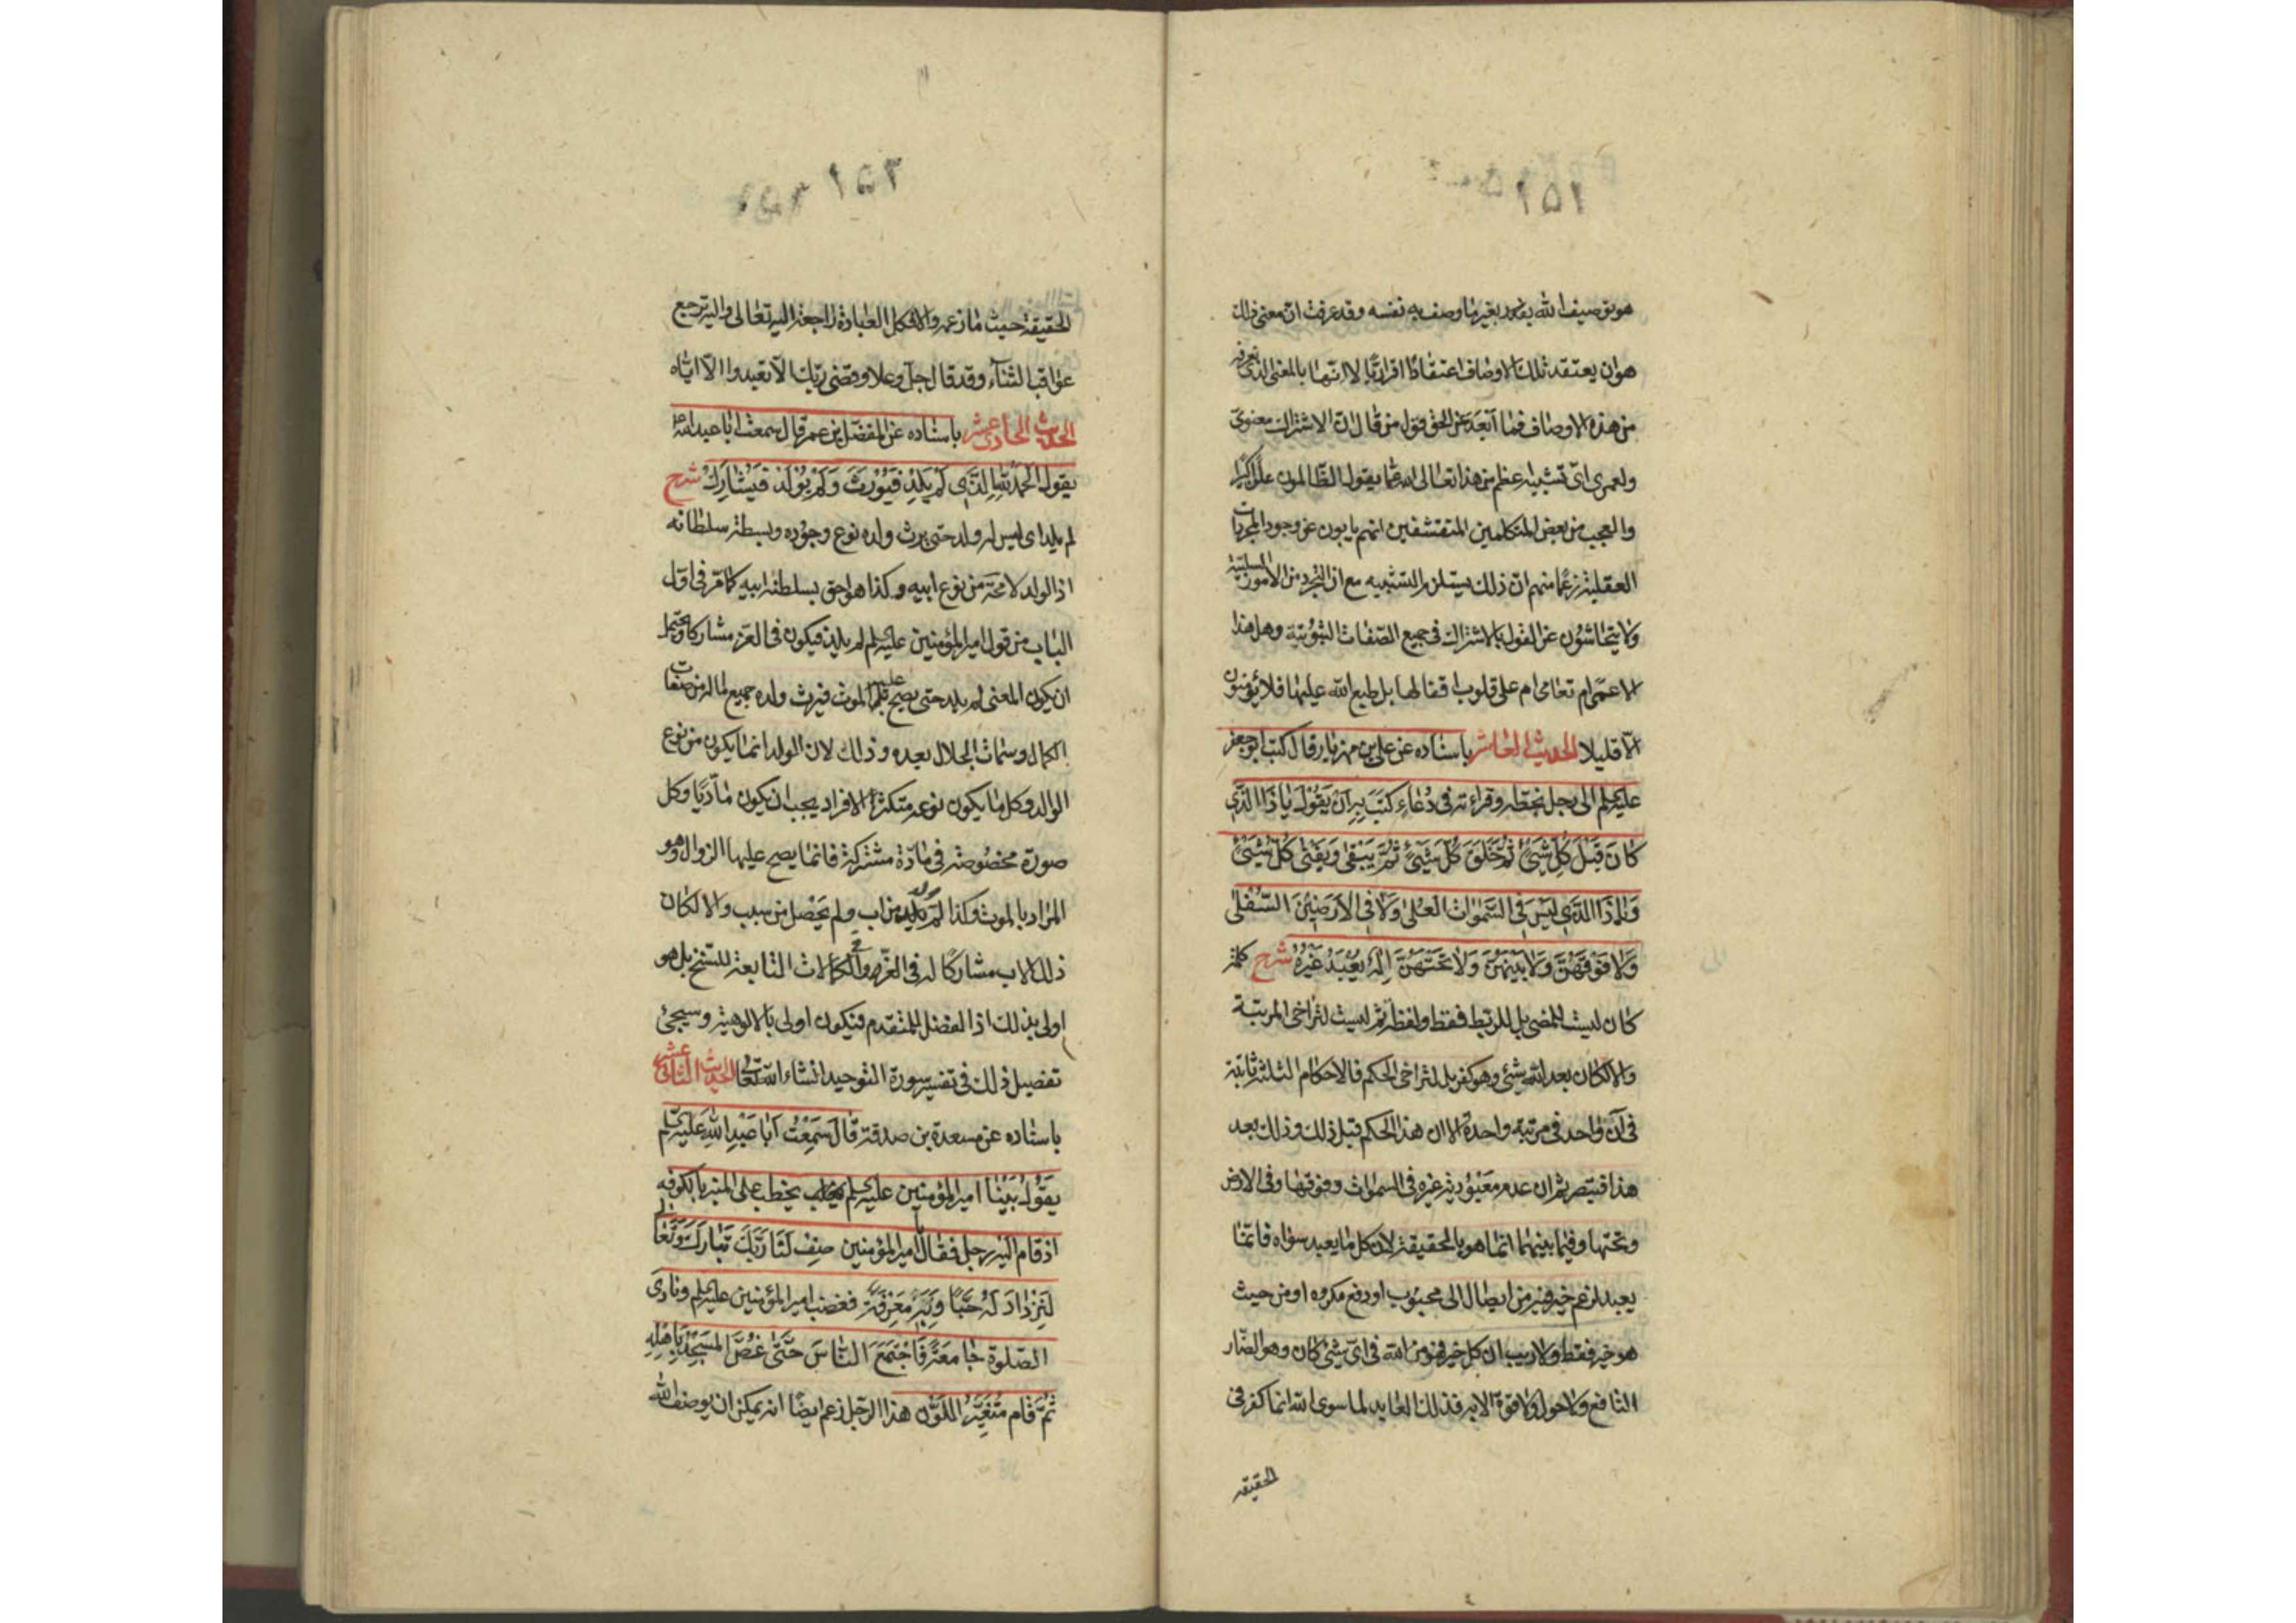 ١٥١
هو توصيف الله بغير ما وصف به نفسه وقد عرفت ان معنى ذلك
هو ان يعتقد تلك الاوصاف اعتقادًا اقراريًا لا انها بالمعنى الذى نعرفه
من هذه الاوصاف فما اَبْعَدَ عن الحق قول من قال ان الاشتراك معنوى
ولعمرى اىّ تشبيه اعظم من هذا تعالى الله عما يقول الظالمون علوًا كبيرًا
والعجب من بعض المتكلمين المتقشفين انهم يابون عن وجود المجردات
العقلية زعمًا منهم ان ذلك يستلزم التشبيه مع ان التجرد من الامور السلبية
ولا يتحاشون عن القول بالاشتراك فى جميع الصفات الثبوتية وهل هذا
الا عمى ام تعامى ام على قلوب اقفالها بل طبع الله عليها فلا يؤمنون
الّا قليلا الحديث العاشر باسناده عن على بن مهزيار قال كتب ابو جعفر
عليه السلم الى رجل بخطه وقراته فى دُعَاءٍ كَتَبَ بِهِ اَنْ يَقُوْلَ يَا ذَا الَّذِى
كَانَ قَبْلَ كُلِّ شَىْءٍ ثُمَّ خَلَقَ كُلَّ شَىْءٍ ثُمَّ يَبْقٰى وَيَفْنٰى كُلُّ شَىْءٍ
وَيَا ذَا الَّذِى لَيْسَ فِى السَّمٰوَاتِ الْعُلٰى وَلَا فِى الْاَرَضِيْنَ السُّفْلٰى
وَلَا فَوْقَهُنَّ وَلَا بَيْنَهُنَّ وَلَا تَحْتَهُنَّ اِلٰهٌ يُعْبَدُ غَيْرُهُ شرح كلمة
كان ليست للمضى بل للربط فقط ولفظة ثم ليست لتراخى المرتبة
والا لكان بعد الله شئ وهو كفر بل لتراخى الحكم فالاحكام الثلثة ثابتة
فى آن واحد فى مرتبة واحدة الا ان هذا الحكم قبل ذلك وذلك بعد
هذا فتبصر ثم ان عدم معبودية غيره فى السموات وفوقها وفى الارض
وتحتها وفيما بينهما انما هو بالحقيقة لان كل ما يعبد سواه فانما
يعبد لزعم خير فيه من ايصال الى محبوب او دفع مكروه او من حيث
هو خير فقط ولا ريب ان كل خير فهو من الله فى اىّ شئ كان وهو الضار
النافع ولا حول ولا قوة الا به فذلك العابد لما سوى الله انما كفر فى
الحقيقة
١٥٢
الحقيقة حيث ما زعمه والا فكل العبادة راجعة اليه تعالى واليه ترجع
عواقب الثناء وقد قال جل وعلا وقضى ربك الّا تعبدوا الّا اياه
الحديث الحادى عشر باسناده عن المفضل بن عمر قال سمعت ابا عبد الله
يقول اَلْحَمْدُ لِلّٰهِ الَّذِى لَمْ يَلِدْ فَيُوْرَثَ وَلَمْ يُوْلَدْ فَيُشَارَكَ شرح
لم يلد اى ليس له ولد حتى يرث ولده نوع وجوده وبسطة سلطانه
اذ الولد لا محة من نوع ابيه وكذا هو احق بسلطنة ابيه كما مر فى اول
الباب من قول امير المؤمنين عليه السلم لم يلد فيكون فى العز مشاركا ويحتمل
ان يكون المعنى لم يلد حتى يصح عليه الموت فيرث ولده جميع ما له من صفات
الكمال وسمات الجلال بعده وذلك لان الولد انما يكون من نوع
الوالد وكل ما يكون نوعه متكثر الافراد يجب ان يكون ماديًا وكل
صورة مخصوصة فى مادة مشتركة فانما يصح عليها الزوال وهو
المراد بالموت وكذا لم يولد من اب ولم يحصل من سبب والا لكان
ذلك الاب مشاركًا له فى العز وفى الكمالات التابعة للسنخ بل هو
اولى بذلك اذ الفضل للمتقدم فيكون اولى بالالوهية وسيجئ
تفصيل ذلك فى تفسير سورة التوحيد انشاء الله تعالى الحديث الثانى عشر
باسناده عن مسعدة بن صدقة قَالَ سَمِعْتُ اَبَا عَبْدِ اللهِ عليه السلم
يَقُوْلُ بَيْنَا امير المؤمنين عليه السلم يخطب على المنبر بالكوفه
اذ قام اليه رجل فقال يا امير المؤمنين صِفْ لَنَا رَبَّكَ تَبَارَكَ وَتَعَالٰى
لِنَزْدَادَ لَهُ حُبًّا وَبِهِ مَعْرِفَةً فغضب امير المؤمنين عليه السلم ونادى
الصَّلٰوة جَامِعَةً فَاجْتَمَعَ النَّاسُ حَتّٰى غَصَّ الْمَسْجِدُ بِاَهْلِهِ
ثُمَّ قَام مُتَغَيِّرَ اللَّوْنِ هذا الرجل زعم ايضًا انه يمكن ان يوصف الله